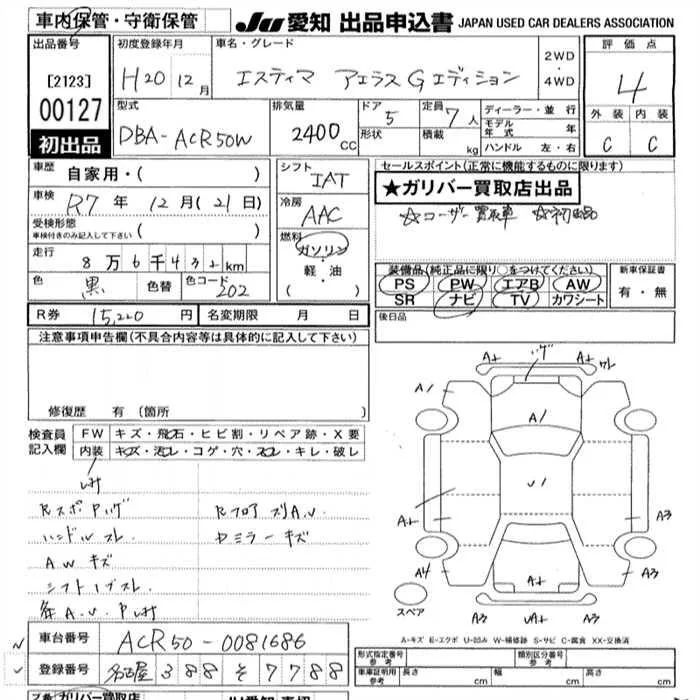 車内保管・守衛保管
JU 愛知 出品申込書 JAPAN USED CAR DEALERS ASSOCIATION
出品番号
[2123]
00127
初出品
初度登録年月
H20 12月
車名・グレード
エスティマ アエラス G エディション
2WD・4WD
評価点
4
外装 内装
C C
型式
DBA-ACR50W
排気量
2400cc
ドア 5
形状
定員 7人
積載 kg
ディーラー・並行
モデル年式 年
ハンドル 左・右
車歴 自家用・( )
車検 R7年 12月(21日)
受検形態
車検付きのみ記入して下さい ( )
走行 8万6千4 km
色 黒 色替 色コード 202
シフト
IAT
冷房
AAC
燃料
ガソリン・軽・油
( )
セールスポイント(正常に機能するものに限ります)
★ガリバー買取店出品
☆ユーザー買取車 ☆初出品
装備品(純正品に限り○をつけてください)
PS PW エアB AW
SR ナビ TV カワシート
新車保証書
有・無
後日品
R券 15,220円 名変期限 月 日
注意事項申告欄(不具合内容等は具体的に記入して下さい)
修復歴 有(箇所 )
検査員記入欄
FW キズ・飛石・ヒビ割・リペア跡・X要
内装 キズ・汚レ・コゲ・穴・スレ・キレ・破レ
ハンドルスレ
AWキズ
Rフロア スリA.U.
ルミラーキズ
A+ A+
A1
A1
U1
A+ A3
A4 A3
A+
A3 UA+ A3
スペア
A-キズ E-エクボ U-凹み W-補修跡 S-サビ C-腐食 XX-交換済
車台番号 ACR50-0081686
登録番号 名古屋 388 そ 7788
形式指定番号 参考
類別区分番号 参考
車庫証明用 参考 長さ cm 幅 cm 高さ cm
ガリバー買取店
JU愛知